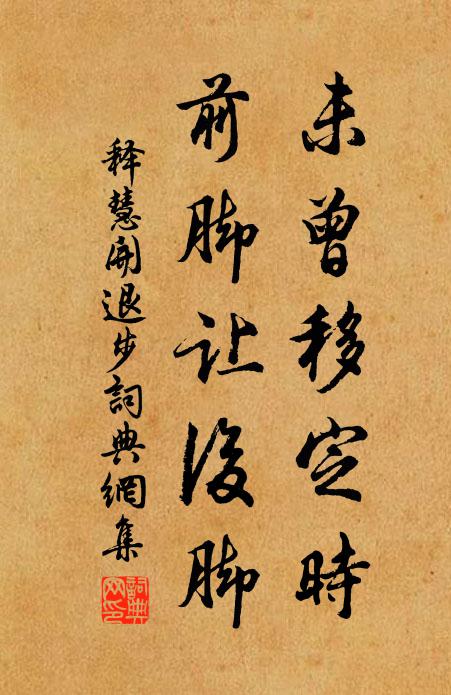 未曾移定時
前脚让後脚
释慧開退步詞典網集
詞典網印